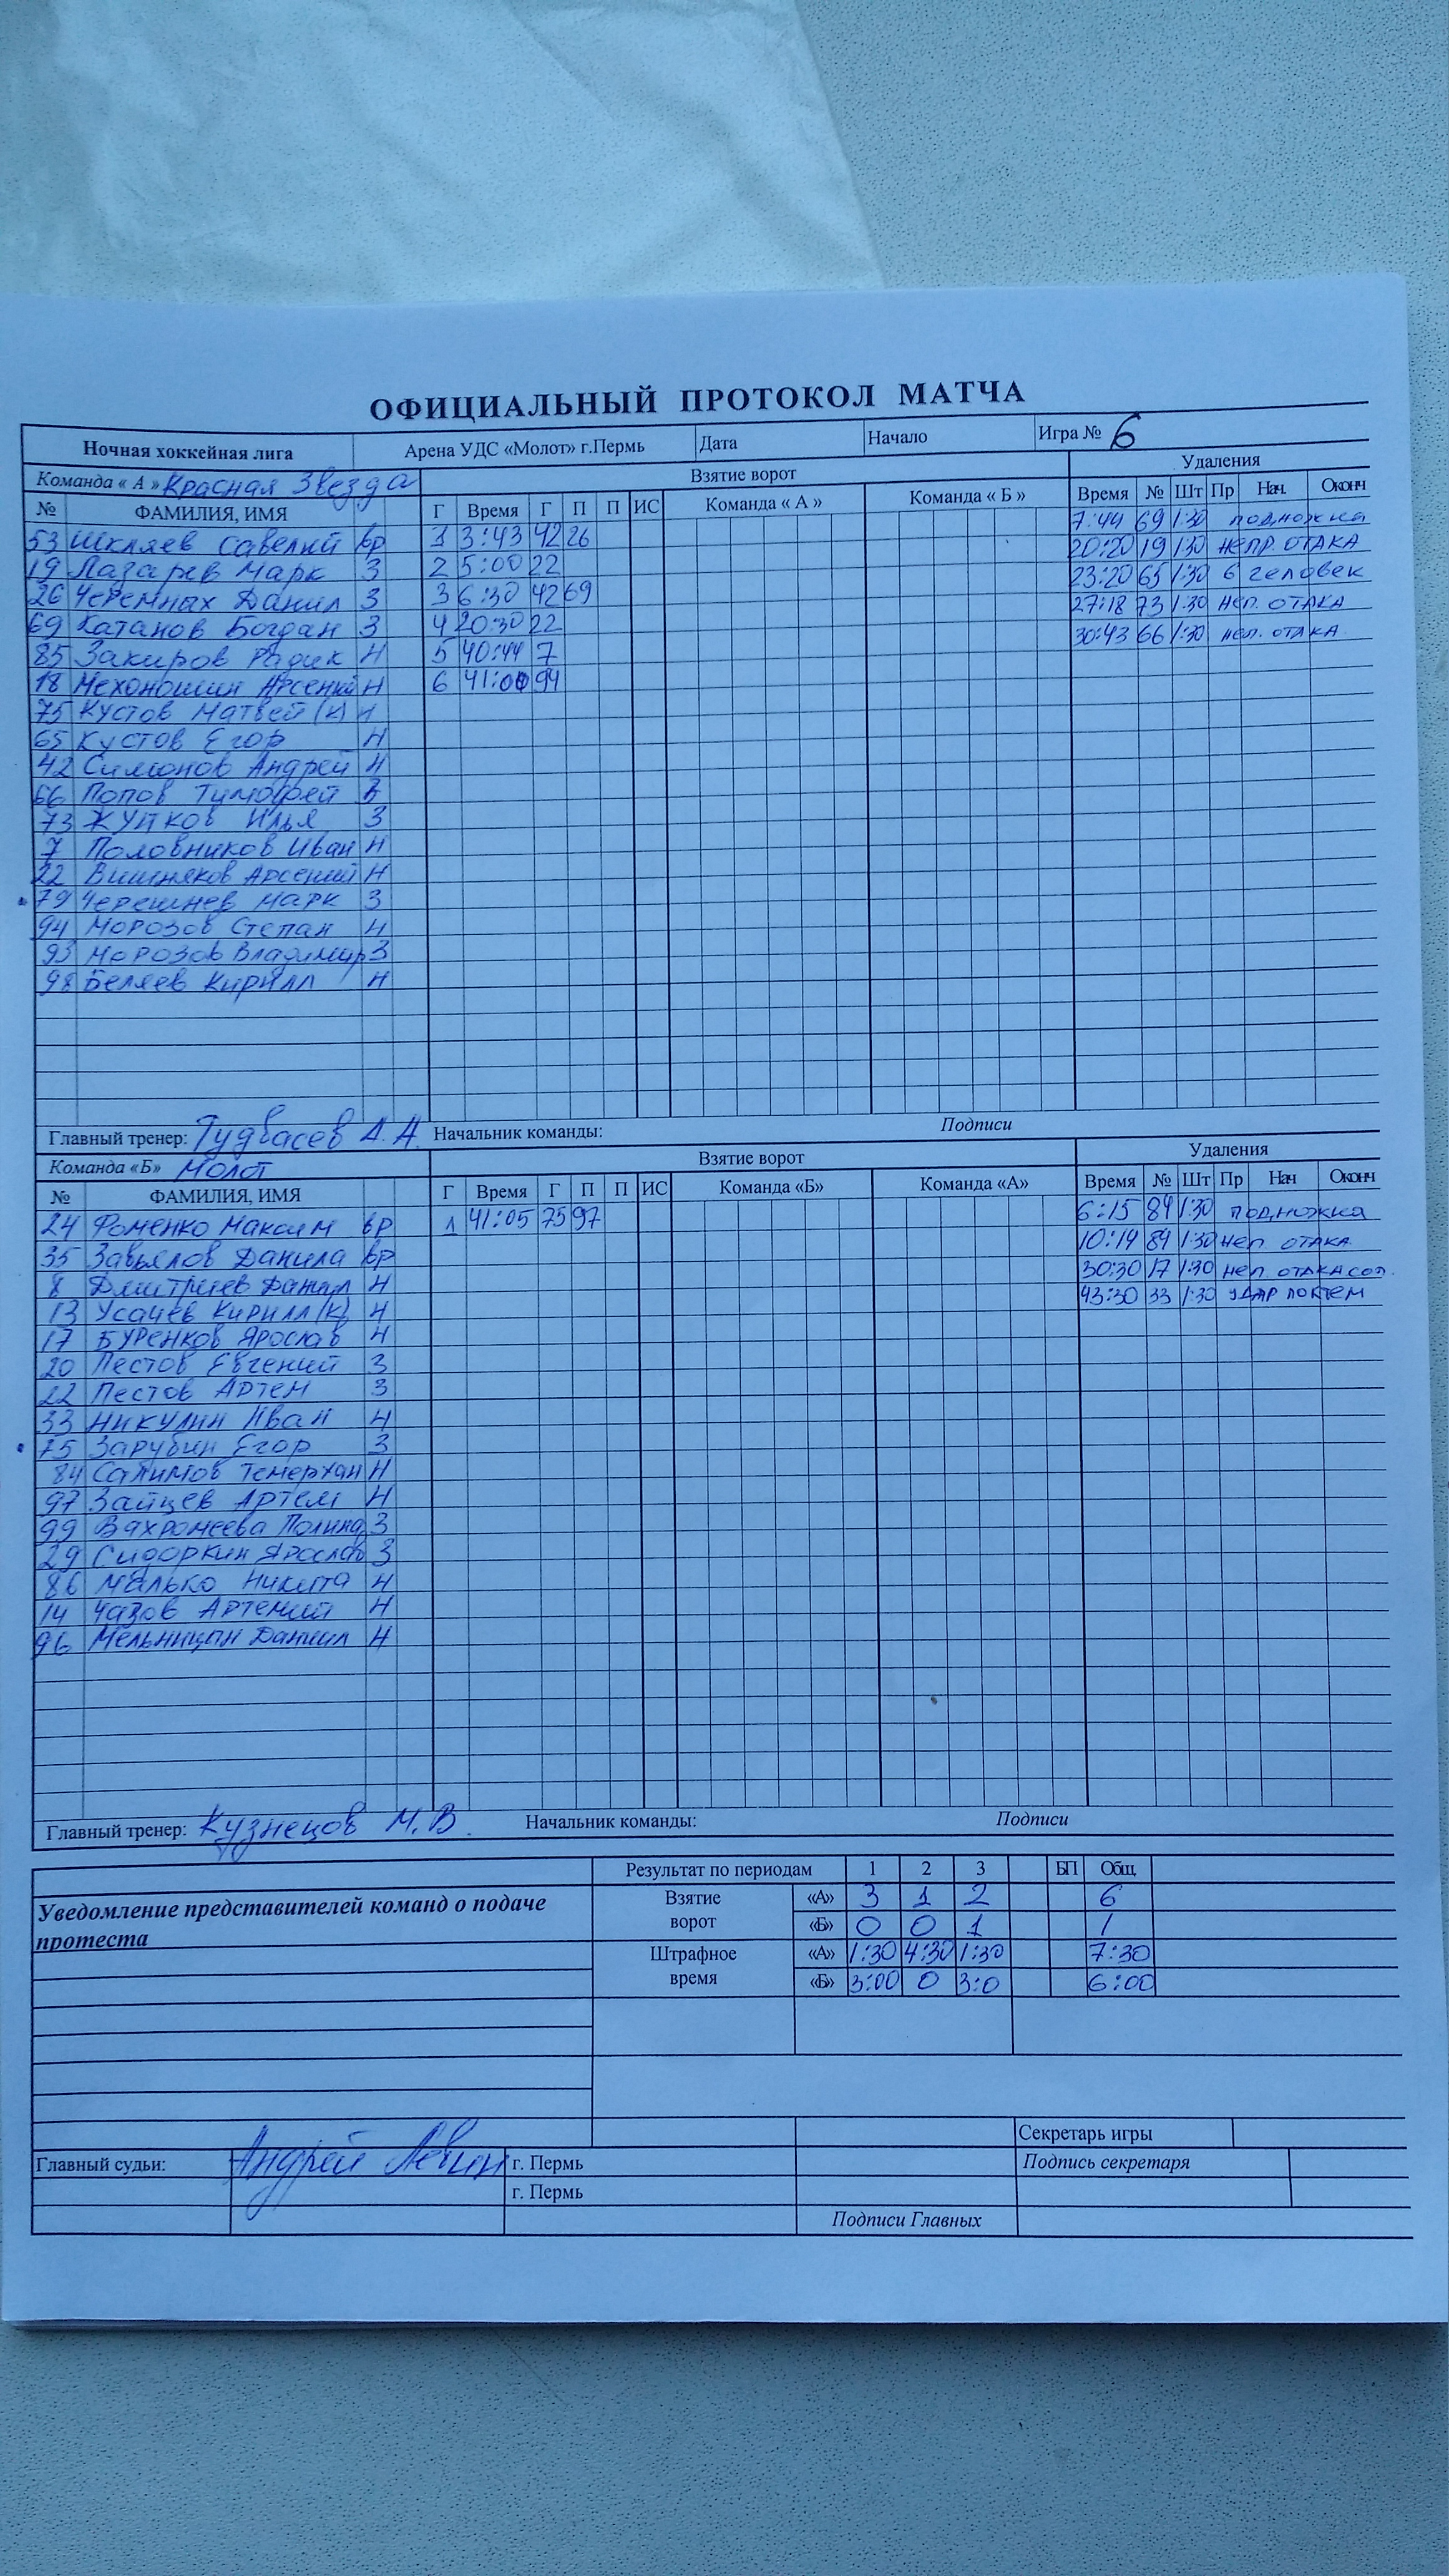 ОФИЦИАЛЬНЫЙ ПРОТОКОЛ МАТЧА
Ночная хоккейная лига Арена УДС «Молот» г.Пермь Дата Начало Игра № 6
Команда « А » Красная Звезда Взятие ворот Удаления
№ ФАМИЛИЯ, ИМЯ Г Время Г П П ИС Команда « А » Команда « Б » Время № Шт Пр Нач. Оконч
53 Шкляев Савелий вр 1 3:43 42 26 7:44 69 1:30 подножка
19 Лазарев Марк З 2 5:00 22 20:20 19 1:30 непр. отака
26 Черемных Данил З 3 6:30 42 69 23:20 65 1:30 6 человек
69 Катанов Богдан З 4 20:30 22 27:18 73 1:30 неп. отака
85 Закиров Радик Н 5 40:44 7 30:43 66 1:30 неп. отака
18 Мехоношин Арсений Н 6 41:00 94
75 Кустов Матвей (к) Н
65 Кустов Егор Н
42 Симонов Андрей Н
66 Попов Тимофей
73 Жупков Илья З
7 Половников Иван Н
22 Вишняков Арсений Н
79 Черешнев Марк З
94 Морозов Степан Н
93 Морозов Владимир З
98 Беляев Кирилл Н
Главный тренер: А. А. Начальник команды: Подписи
Команда «Б» Молот Взятие ворот Удаления
№ ФАМИЛИЯ, ИМЯ Г Время Г П П ИС Команда «Б» Команда «А» Время № Шт Пр Нач Оконч
24 Фоменко Максим вр 1 41:05 75 97 6:15 84 1:30 подножка
35 Завьялов Данила вр 10:14 84 1:30 неп отака
8 Дмитриев Данил Н 30:30 17 1:30 неп. отака соп.
13 Усачев Кирилл (к) Н 43:30 33 1:30 удар локтем
17 Буренков Ярослав Н
20 Пестов Евгений З
22 Пестов Артем З
33 Никулин Иван Н
75 Зарубин Егор З
84 Салимов Темерхан Н
97 Зайцев Артем Н
99 Вахромеева Полина З
29 Сидоркин Ярослав З
86 Малько Никита Н
14 Чазов Артемий Н
96 Мельницын Даниил Н
Главный тренер: Кузнецов М.В. Начальник команды: Подписи
Результат по периодам 1 2 3 БП Общ
Уведомление представителей команд о подаче протеста
Взятие ворот «А» 3 1 2 6
«Б» 0 0 1 1
Штрафное время «А» 1:30 4:30 1:30 7:30
«Б» 3:00 0 3:0 6:00
Секретарь игры
Главный судьи: Андрей Левин г. Пермь Подпись секретаря
г. Пермь
Подписи Главных